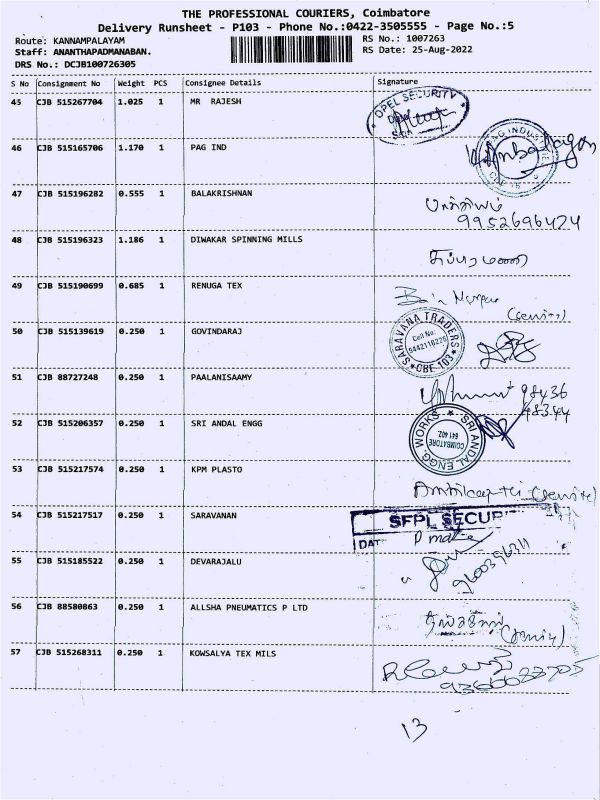 THE PROFESSIONAL COURIERS, Coimbatore
Delivery Runsheet - P103 - Phone No.:0422-3505555 - Page No.:5
Route: KANNAMPALAYAM
RS No.: 1007263
Staff: ANANTHAPADMANABAN.
RS Date: 25-Aug-2022
DRS No.: DCJB100726305
S No Consignment No Weight PCS Consignee Details Signature
45 CJB 515267704 1.025 1 MR RAJESH
OPEL SECURITY
46 CJB 515165706 1.170 1 PAG IND
47 CJB 515196282 0.555 1 BALAKRISHNAN
9952696424
48 CJB 515196323 1.186 1 DIWAKAR SPINNING MILLS
49 CJB 515190699 0.685 1 RENUGA TEX
50 CJB 515139619 0.250 1 GOVINDARAJ
SARAVANA TRADERS
Cell No:
CBE-103
51 CJB 88727248 0.250 1 PAALANISAAMY
98436
98344
52 CJB 515206357 0.250 1 SRI ANDAL ENGG
SRI ANDAL ENGG. WORKS
COIMBATORE
641 402.
53 CJB 515217574 0.250 1 KPM PLASTO
54 CJB 515217517 0.250 1 SARAVANAN
SFPL
55 CJB 515185522 0.250 1 DEVARAJALU
9600396311
56 CJB 88580863 0.250 1 ALLSHA PNEUMATICS P LTD
57 CJB 515268311 0.250 1 KOWSALYA TEX MILS
13